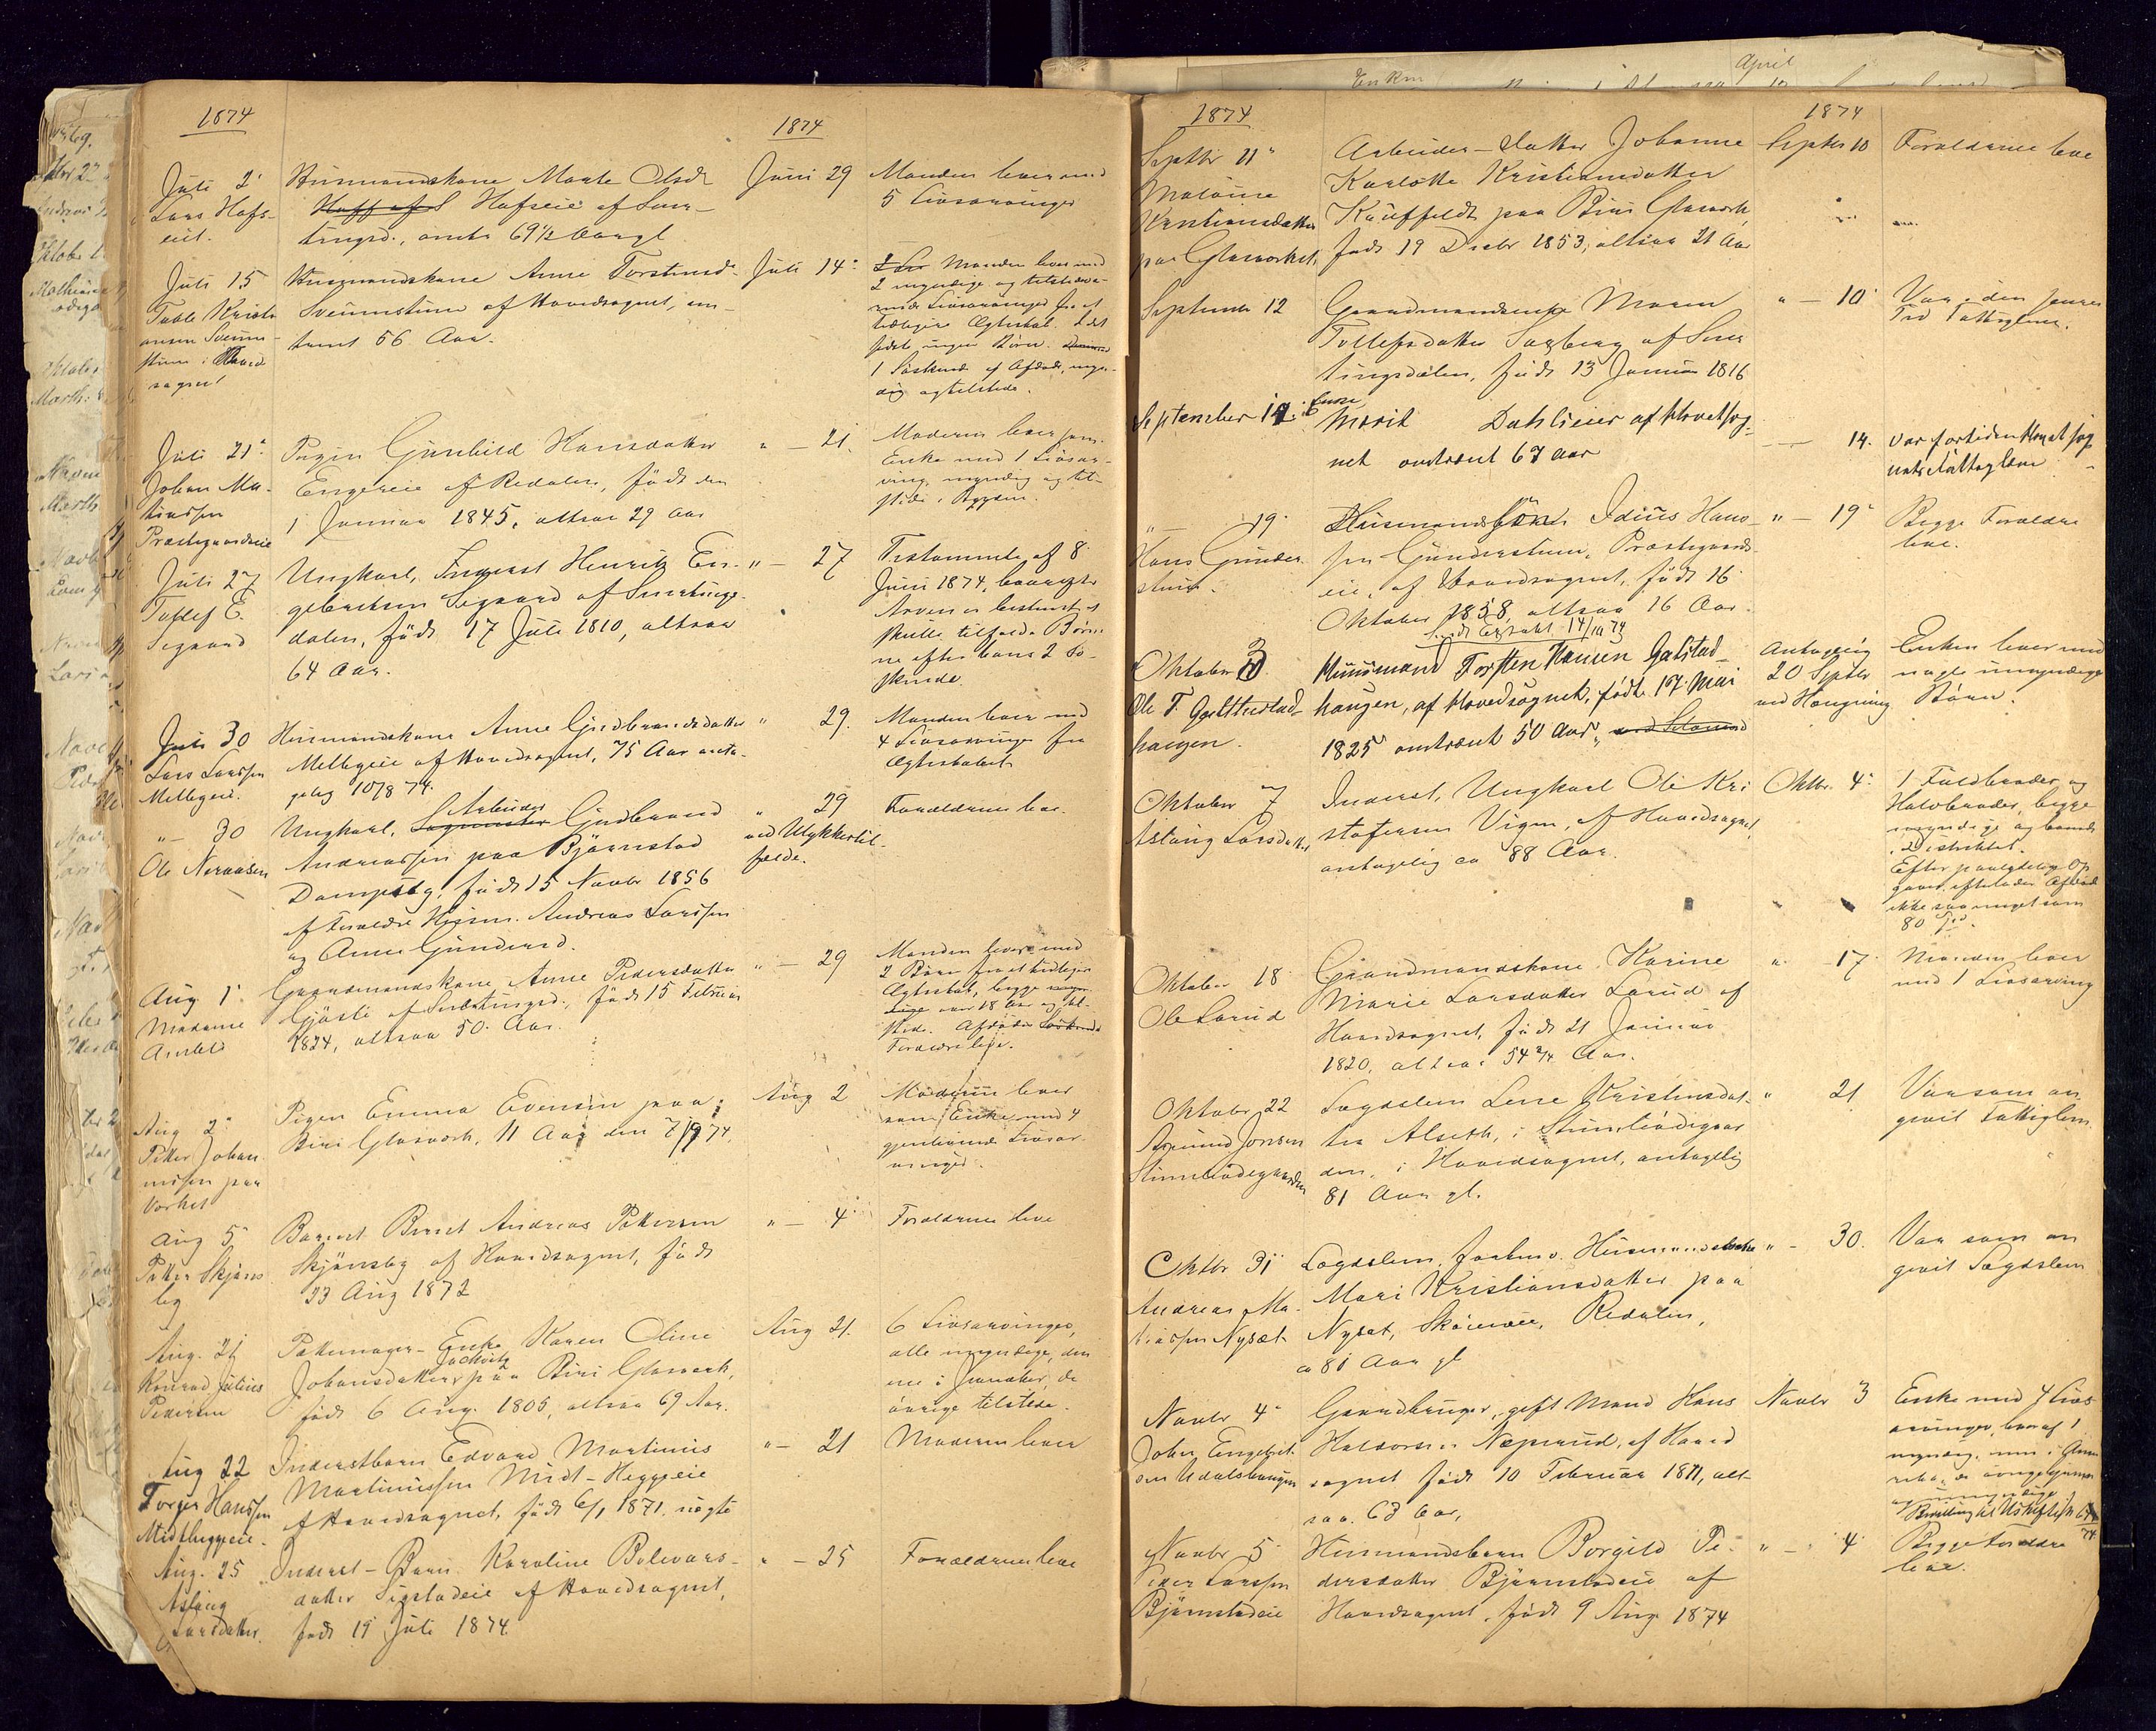 1874
1874
Juli 2
Lars Hafs-
eiet.
Husmandskone Marte Olsdr
Hafseie af Snær-
tingsd., omtr 69½ Aargl
Juni 29
Manden lever med
5 Livsarvinger
Juli 15
Husmandskone Anne Torstensd.
Svennstuen af Hovedsognet, om-
tremt 56 Aar.
Juli 14
Manden lever med
2 myndige og tilstedevæ-
rende Livsarvinger fra et
tidligere Ægteskab. I det
sidste ingen Børn.
1 Søskende af Afdøde, myn-
dig og tilstede.
Juli 21
Johan Ma-
thiassen
Præstegaardseie
Pigen Gunhild Hansdatter
Engereie af Redalen, født den
1 Januar 1845, altsaa 29 Aar
" — 21.
Moderen lever som
Enke med 1 Livsar-
ving, myndig og til-
stede i Bygden.
Juli 27
Tollef E.
Segaard
Ungkarl, Inderst Henrik En-
gebretsen Segaard af Snertings-
dalen, født 17 Juli 1810, altsaa
64 Aar.
" — 27
Testamente af 8
Juni 1874, hvorefter
Arven er bestemt at
skulle tilfalde Børne-
ne efter hans 2 Sø-
skende.
Juli 30
Lars Larssen
Mellegeie.
Husmandskone Anne Gudbrandsdatter
Mellegeie af Hovedsognet, 75 Aar anta-
gelig 10/8 74.
" 29.
Manden lever med
4 Livsarvinger fra
Ægteskabet
" — 30
Ole Neraasen
Arbeider
Ungkarl, Gudbrand
Andreassen paa Bjørnstad
Dampsag, født 15 Novbr 1856
af Forældre Husm. Andreas Larssen
og Anne Gundersd.
" 29
ved Ulykkestil-
fælde.
Forældrene lever.
Aug 1
Madame
Amble
Gaardmandskone Anne Pedersdatter
Gjøsli af Snertingsd., født 15 Februar
1824, altsaa 50 Aar.
" — 29
Manden lever med
2 Børn fra et tidligere
Ægteskab, begge
over 18 Aar og til-
stede.
Aug 2
Peter Johan-
nessen paa
Værket
Pigen Emma Evensen paa
Biri Glasværk, 11 Aar den 7/9 74.
Aug 2
Moderen lever
som Enke med 4
gjenlevende Livsar-
vinger.
Aug 5
Peter Skjøns-
by
Barnet Bernt Andreas Pettersen
Skjønsby af Hovedsognet, født
23 Aug 1872
" — 4
Forældrene leve
Aug. 21
Konrad Julius
Pedersen
Pottemager-Enke Karen Oline
Johansdatter paa Biri Glasværk,
født 6 Aug. 1805, altsaa 69 Aar.
Aug 21.
6 Livsarvinger,
alle myndige, den
ene i Amerika, de
øvrige tilstede.
Aug 22
Torger Hanssen
Midtheggeeie.
Inderstbarn Edvard Martinus
Martinussen Midt-Heggeeie
af Hovedsognet, født 6/1 1871, uægte
" — 21
Moderen lever
Aug. 25
Aslaug
Larsdatter.
Inderst-Barn Karoline Bolevars-
datter Sigstadeie af Hovedsognet,
født 19 Juli 1874.
" — 25
Forældrene leve
1874
1874
Septbr 11
Kristiansdatter
paa Glasværket
Arbeider-Datter Johanne
Karlotte Kristiansdatter
Kauffeldt paa Biri Glasværk,
født 19 Decbr 1853, altsaa 21 Aar
Septbr 10
Forældrene leve
September 12
Gaardmandsenke Maren
Tollefsdatter Sagberg af Sner-
tingsdalen, født 13 Januar 1816
" — 10
Var i den senere
Tid Fattiglem.
September 17.
Enke
Marit Dahlieier af Hovetsog-
net omtrent 67 Aar
— 14.
Var fortiden Hovetsog-
nets Fattiglem
" — 19
Hans Gunder-
stuen.
Husmandssøn Idius Hans-
sen Gunderstuen, Præstegaards-
eie, af Hovedsognet, født 16
Oktober 1858, altsaa 16 Aar.
" — 19
Begge Forældre
leve.
Oktober 3
Ole T. Galthestad-
haugen.
Huusmand Torsten Hansen Galstad-
haugen, af Hovedsognet, født 17 Mai
1825 omtrent 50 Aar,
Antagelig
20 Septbr
ved Hængning
Enken lever med
nogle umyndige
Børn.
Oktober 7
Aslaug Larsdatter
Inderst, Ungkarl Ole Kri-
stofersen Vigen, af Hovedsognet,
antagelig ca 88 Aar.
Oktbr. 4
1 Fuldbroder og
Halvbroder, begge
myndige og boende
i Distriktet.
Efter paalydelig Op-
gave efterlader Afdøde
ikke saa meget som
80 Spd.
Oktober 18
Ole Larud
Gaardmandskone Karine
Marie Larsdatter Larud af
Hovedsognet, født 21 Januar
1820, altsaa 54 3/4 Aar.
" — 17
Manden lever
med 1 Livsarving
Oktober 22
Amund Jonsen
Stenslieødegaarden
Lægdslem Lene Kristensdat-
ter Alseth, i Stenslieødegaar-
den, i Hovedsognet, antagelig
81 Aar gl.
" 21
Var som an-
givet Fattiglem
Oktbr. 31
Andreas Ma-
thiassen Nysæt
Lægdslem, forhenv. Husmandsenke
Mari Kristiansdatter paa
Nysæt, Skøieneie, Redalen,
ca 81 Aar gl
" — 30.
Var som an-
givet Lægdslem
Novbr 4
Johan Engebret-
sen Udalshaugen
Gaardbruger, gift Mand Hans
Halvorsen Næperud, af Hoved-
sognet født 10 Februar 1811, alt-
saa 63 Aar,
Novbr 3
Enke med 7 Livs-
arvinger, hvoraf 1
myndig, men i Ame-
rika, de øvrige hjemme
og umyndige
Novbr 5
Peder Larssen
Bjørnstadeie
Husmandsbarn Borghild Pe-
dersdatter Bjørnstadeie af
Hovedsognet, født 9 Aug 1874
" — 4
Begge Forældre
leve.